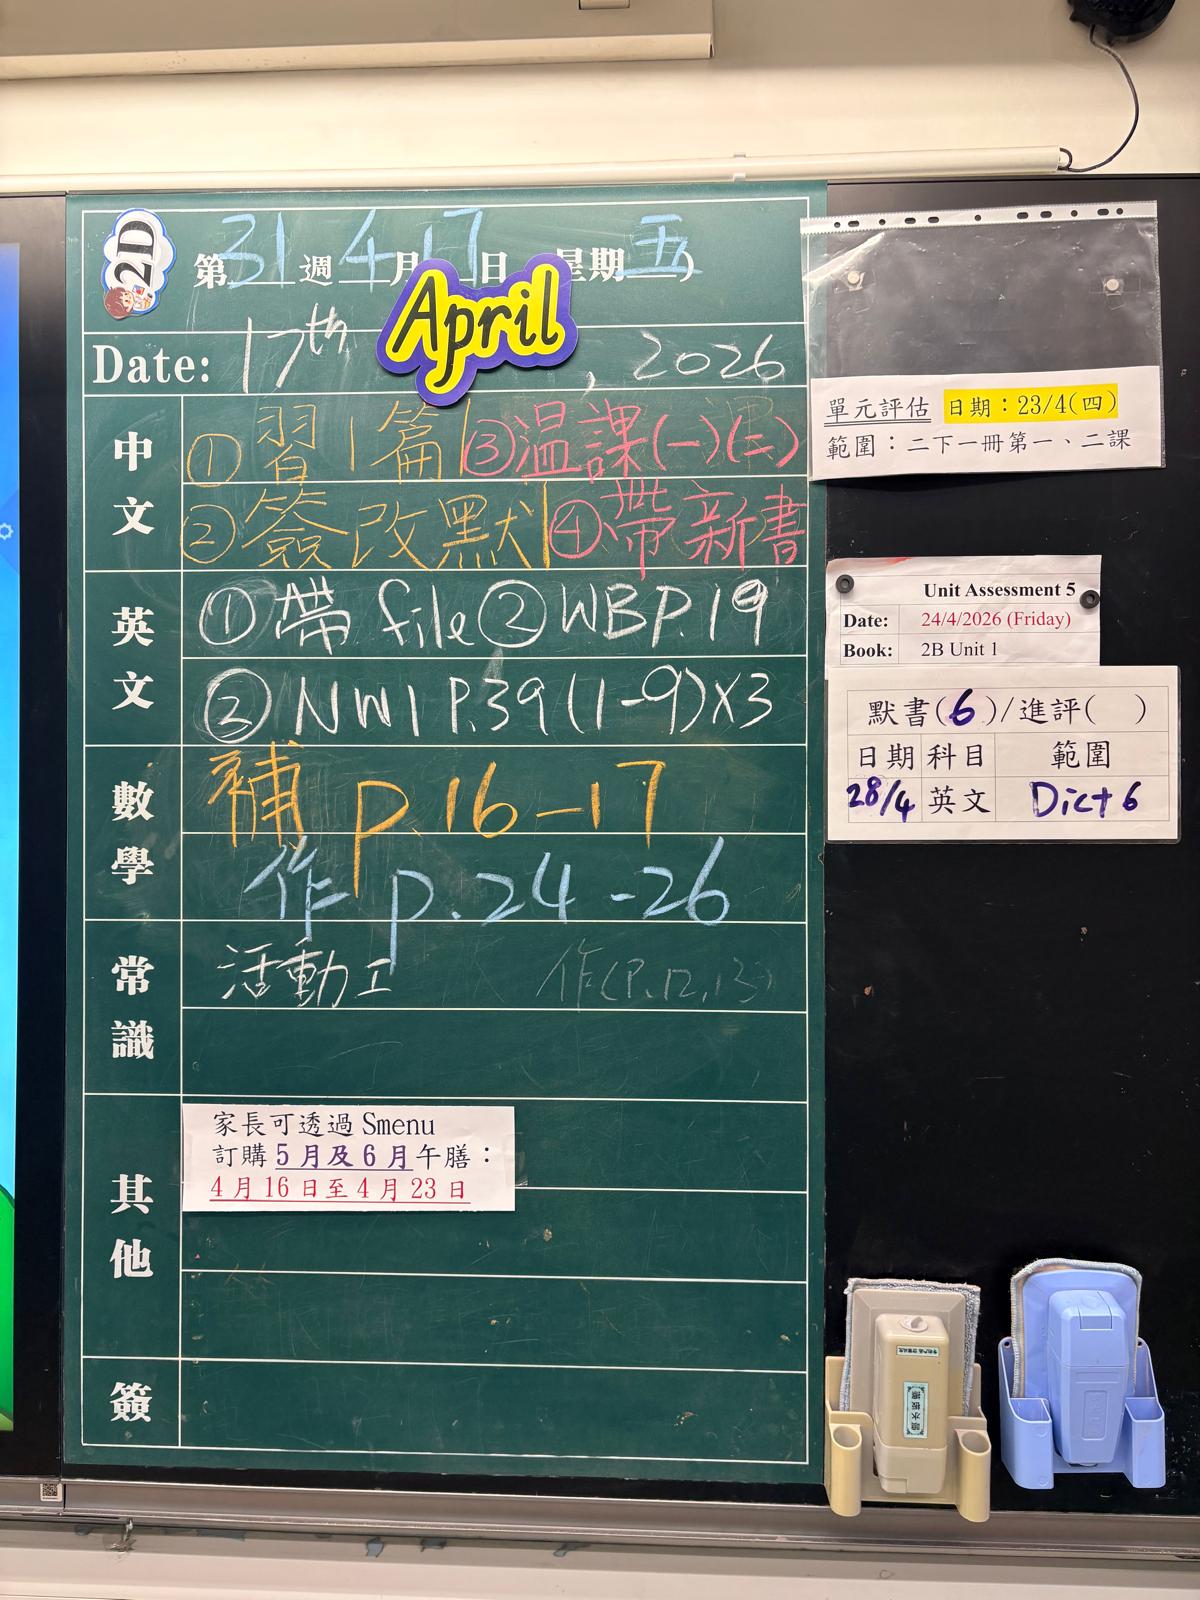 2D
第31週4月17日 星期五)
April
Date: 17th , 2026
中文
①習1篇 ③温課(一)(二)
②簽改默 ④帶新書
英文
①帶 file ② WB P.19
② NW1 P.39 (1-9)x3
數學
補 p.16-17
作 p.24-26
常識
活動工 作(P.12,13)
其他
家長可透過 Smenu
訂購 5月及6月午膳：
4月16日至4月23日
簽
單元評估 日期：23/4(四)
範圍：二下一冊第一、二課
Unit Assessment 5
Date: 24/4/2026 (Friday)
Book: 2B Unit 1
默書(6)/進評( )
日期 科目 範圍
28/4 英文 Dict 6